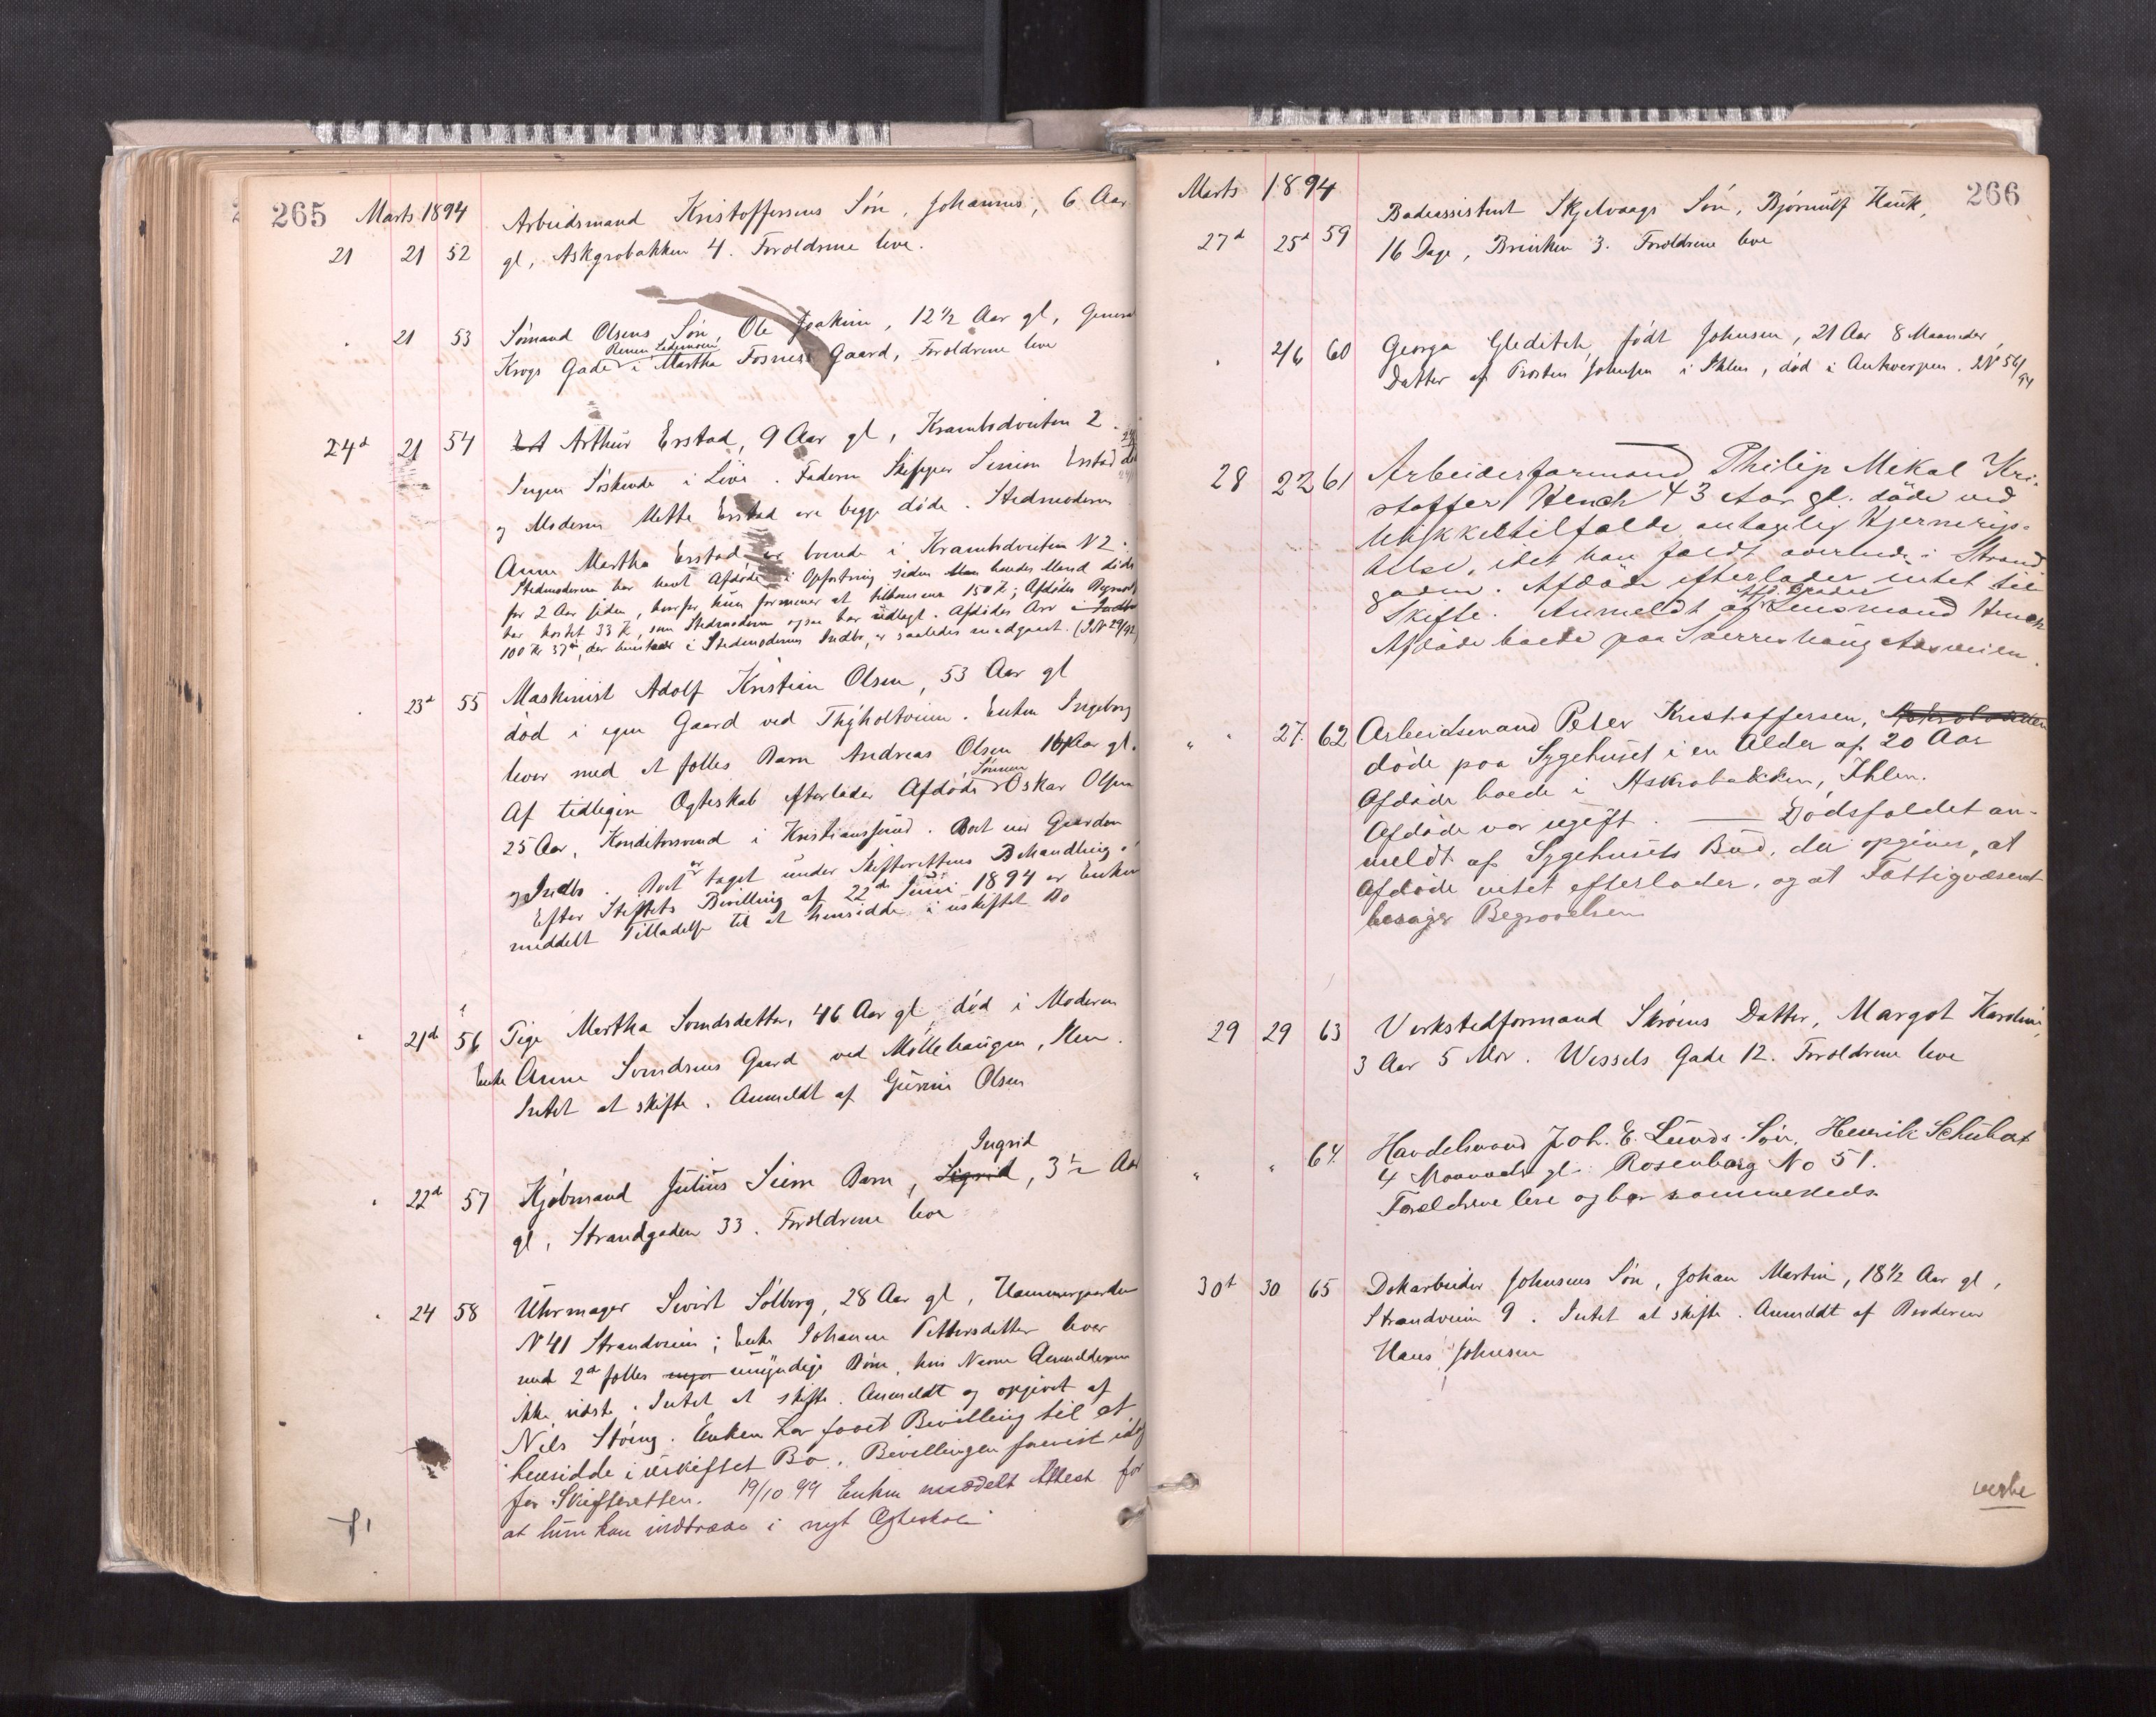 265 Marts 1894
21 21 52 Arbeidsmand Kristoffersens Søn, Johannes, 6 Aar
gl, Askgrobakken 4. Forældrene leve.
" 21 53 Sømand Olsens Søn, Ole Joakim, 12 1/2 Aar gl, General
Krogs Gade i Martha Fosnes Gaard, Forældrene leve
24d 21 54 Arthur Erstad, 9 Aar gl, Krambodveiten 2.
Ingen Søskende i Live. Faderen Skipper Simon Erstad
og Moderen Mette Erstad ere begge døde. Stedmoderen
Anna Martha Erstad er boende i Krambodveiten N 2.
Stedmoderen har havt Afdøde i Opfostring siden hendes Mand døde
for 2 Aar siden, hvorfor hun formener at tilkomme 150 Kr; Afdødes Begravelse
har kostet 33 Kr, som Stedmoderen ogsaa har udlagt. Afdødes Arv
100 Kr 37 øre, der henstaar i Stedmoderens Indbo, er saaledes medgaaet. (J.N 29/92)
" 23d 55 Maskinist Adolf Kristian Olsen, 53 Aar gl
død i egen Gaard ved Thyholtveien. Enken Ingeborg
lever med et fælles Barn Andreas Olsen 16 Aar gl.
Af tidligere Ægteskab efterlader Afdøde Sønnen Oskar Olsen
25 Aar, Konditorsvend i Kristianssund. Boet eier Gaarden
og Indbo. Boet er taget under Skifterettens Behandling.
Efter Stiftets Bevilling af 22de Juni 1894 er Enken
meddelt Tilladelse til at hensidde i uskiftet Bo
" 21de 56 Pige Martha Svendsdatter, 46 Aar gl, død i Moderen
Enke Anne Svendsens Gaard ved Møllehaugen, Ilen.
Intet at skifte. Anmeldt af Gurine Olsen
" 22d 57 Kjøbmand Julius Siem Barn, Sigrid Ingrid, 3 1/2 Aar
gl, Strandgaden 33. Forældrene leve
" 24 58 Uhrmager Sivert Solberg, 28 Aar gl, Hammergaarden
N 41 Strandveien; Enke Johanna Pettersdatter lever
med 2de fælles umyndige Børn, hvis Navne Anmelderen
ikke vidste. Intet at skifte. Anmeldt og opgivet af
Nils Støing. Enken har faaet Bevilling til at
hensidde i uskiftet Bo. Bevillingen forevist idag
for Skifteretten. 19/10 99 Enken meddelt Attest for
at hun kan indtræde i nyt Ægteskab
Marts 1894 266
27d 25d 59 Badeassistent Skjelvaags Søn, Bjørnulf Hauk,
16 Dage, Brinken 3. Forældrene leve
" 2/6 60 Georga Gleditch født Johnsen, 21 Aar 8 Maaneder,
Datter af Prosten Johnsen i Ihlen, død i Antwerpen. J.N 56/94
28 22 61 Arbeiderformand Philip Mikal Kri-
stoffer Henck 43 Aar gl. døde ved
Ulykkestilfælde, antagelig Hjernerys-
telse, idet han faldt overende i Strand
gaden. Afdøde efterlader intet til
Skifte. Anmeldt af Afd. Broder Lensmand Henck
Afdøde boede paa Sverreshaug Aasveien.
" " 27. 62 Arbeidsmand Peter Kristoffersen,
døde paa Sygehuset i en Alder af 20 Aar
Afdøde boede i Askrobakken, Ihlen.
Afdøde var ugift. — Dødsfaldet an-
meldt af Sygehusets Bud, der opgiver, at
Afdøde intet efterlader, og at Fattigvæsenet
besørger Begravelsen
29 29 63 Verkstedformand Skrøens Datter, Margot Karoline,
3 Aar 5 Mdr. Wessels Gade 12. Forældrene leve
" " 64. Handelsmand Joh. E. Lunds Søn, Henrik Schubart
4 Maaneder gl. Rosenborg No 51.
Forældrene leve og bor sammesteds.
30t 30 65 Dokarbeider Johnsens Søn, Johan Martin, 18 1/2 Aar gl,
Strandveien 9. Intet at skifte. Anmeldt af Broderen
Hans Johnsen
verte